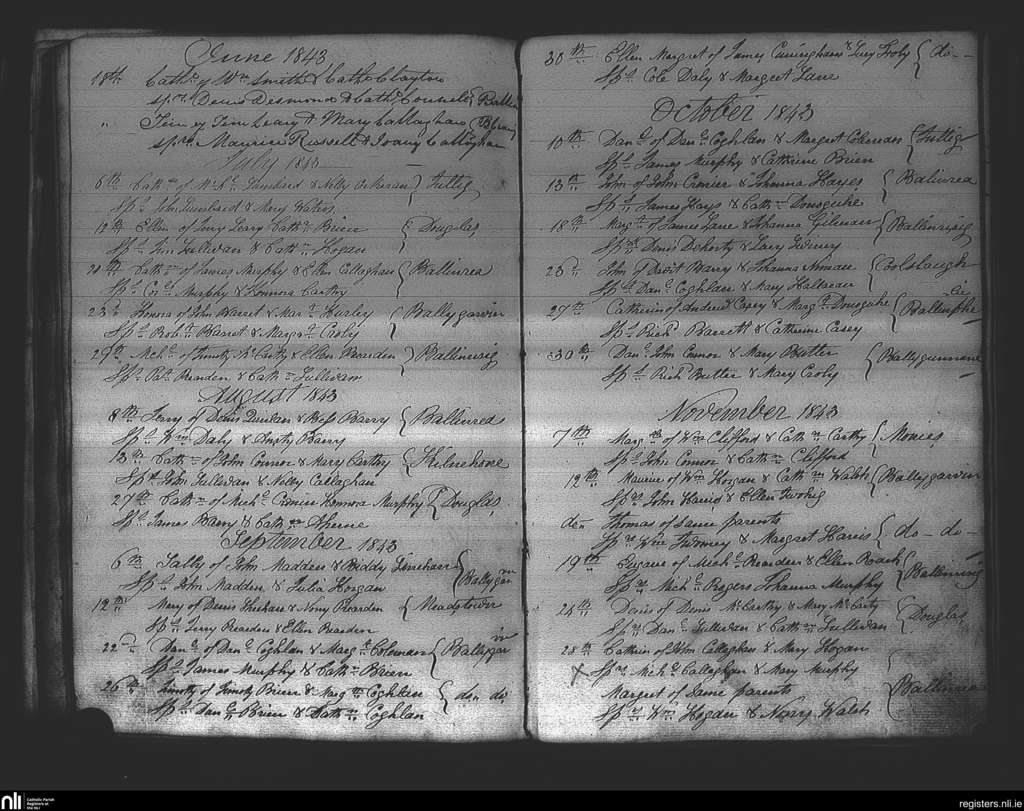 June 1843
18th Cath. of Wm Smith & Cath. Clayton
Sprs Denis Desmond & Cath. Counel
" Tim of Tim Leary & Mary Callaghan
sprs Maurice Russell & Joany Callaghan
July 1843
6th Cath. of & Nelly Tullig
Sps John & Mary Waters
10th Ellen of Jerry Leary Cath. Brien Douglas
Sps Tim Sullivan & Cath. Hogan
Cath. of James Murphy & Ellen Callaghan Ballinrea
Sps Murphy & Honnora Carthy
23d Honora of John Barret & Mar. Hurley Ballygarvin
Sps Rob. Barret & Marg. Casby
29th Mich. of Timothy McCarthy & Ellen Rearden Ballinrisig
Sps Rearden & Cath. Sullivan
August 1843
8th Jerry of Denis Quinlan & Bess Barry Ballinrea
Sps Wm Daly & Ansty Barry
13th Cath. of John Connor & Mary Carthy
Sps John Sullivan & Nelly Callaghan
27th Cath. of Mich. Cronin Honnora Murphy Douglas
Sps James Barry & Cath. Aherne
September 1843
6th Sally of John Madden & Biddy
Sps John Madden & Julia Horgan
12th Mary of Denis & Nony Rearden Meadstown
Sps Jerry Rearden & Ellen Rearden
22d Dan. of Dan. Coghlan & Marg. Coleman
Sps James Murphy & Cath. Brien
26th Timothy of Timoty Brien & Marg. Coghlan do do
Sps Dan. Brien & Cath. Coghlan
30th Ellen Margret of James Cunningham & do
Sps Cole Daly & Margret Lane
October 1843
10th Dan. of Dan. Coghlan & Margret Coleman Tullig
Sps James Murphy & Catherine Brien
13th John of John Cronin & Johanna Hayes Balinrea
Sps James Hays & Cath. Donoguhe
18th Marg. of James Lane & Johanna Gilman Ballinrisig
Sps Denis Doherty & Lucy
23d John of Davit Barry & Johanna
Sps Dan. Coghlan & Mary Halloran
27th Catherin of Andrew Casey & Marg. Donoguhe
Sps Rich. Barrett & Catherine Casey
30th Dan. John Connor & Mary Butler
Sps Rich. Butler & Mary Casby
November 1843
7th Marg. of Wm Clifford & Cath. Carthy Monies
Sps John Connor & Cath. Clifford
12th Maurice of Wm Horgan & Cath. Ballygarvin
Sps John Harris & Ellen Twohig
do Thomas of Same parents
Sps Wm Twomey & Margret Harris do do
19th of Mich. Rearden & Ellen Roach Ballinrisig
Sps Mich. Rogers Johanna Murphy
24th Denis of Denis McCarthy & Mary McCarty Douglas
Sps Dan. Sullivan & Cath. Sullivan
28th Cathrin of John Callaghan & Mary Hogan
X Sps Mich. Callaghan & Mary Murphy
Margret of Same parents Ballinrea
Sps Wm Hogan & Nony Walsh
nli Catholic Parish Registers at the NLI
registers.nli.ie